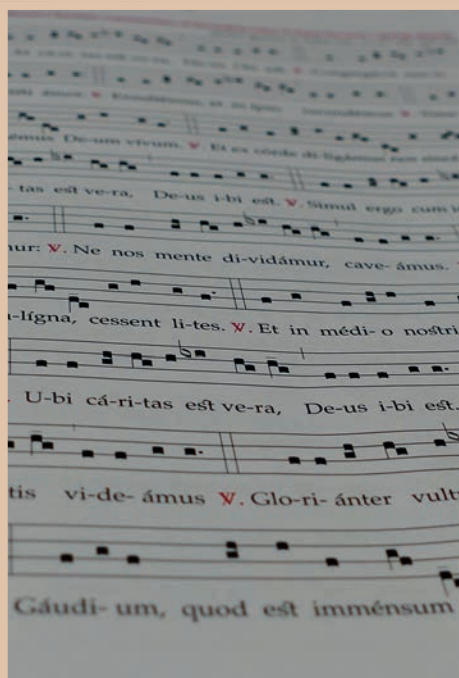 émus De-um vivum. ℣. Et ex corde di-ligámus
-tas est ve-ra, De-us i-bi est. ℣. Simul ergo cum
mur: ℣. Ne nos mente di-vidámur, cave-ámus.
-lígna, cessent li-tes. ℣. Et in médi-o nostri
. U-bi cá-ri-tas est ve-ra, De-us i-bi est.
tis vi-de-ámus ℣. Glo-ri-ánter vult
Gáudi-um, quod est imménsum